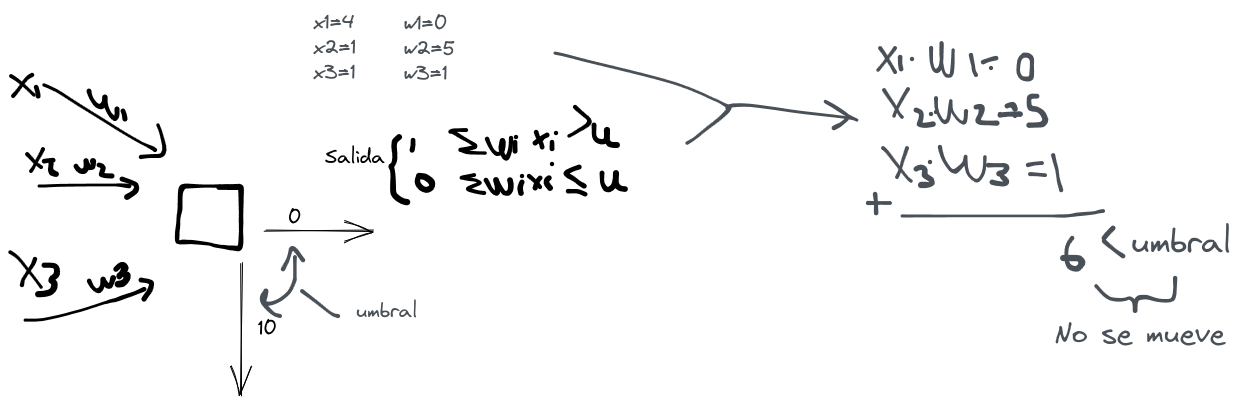 x1=4 w1=0
x2=1 w2=5
x3=1 w3=1
X1 W1
X2 W2
X3 W3
Salida { 1 Σwi xi > u
0 Σwixi ≤ u
0
10
umbral
X1·W1= 0
X2·W2=5
X3·W3=1
+
6 < umbral
No se mueve